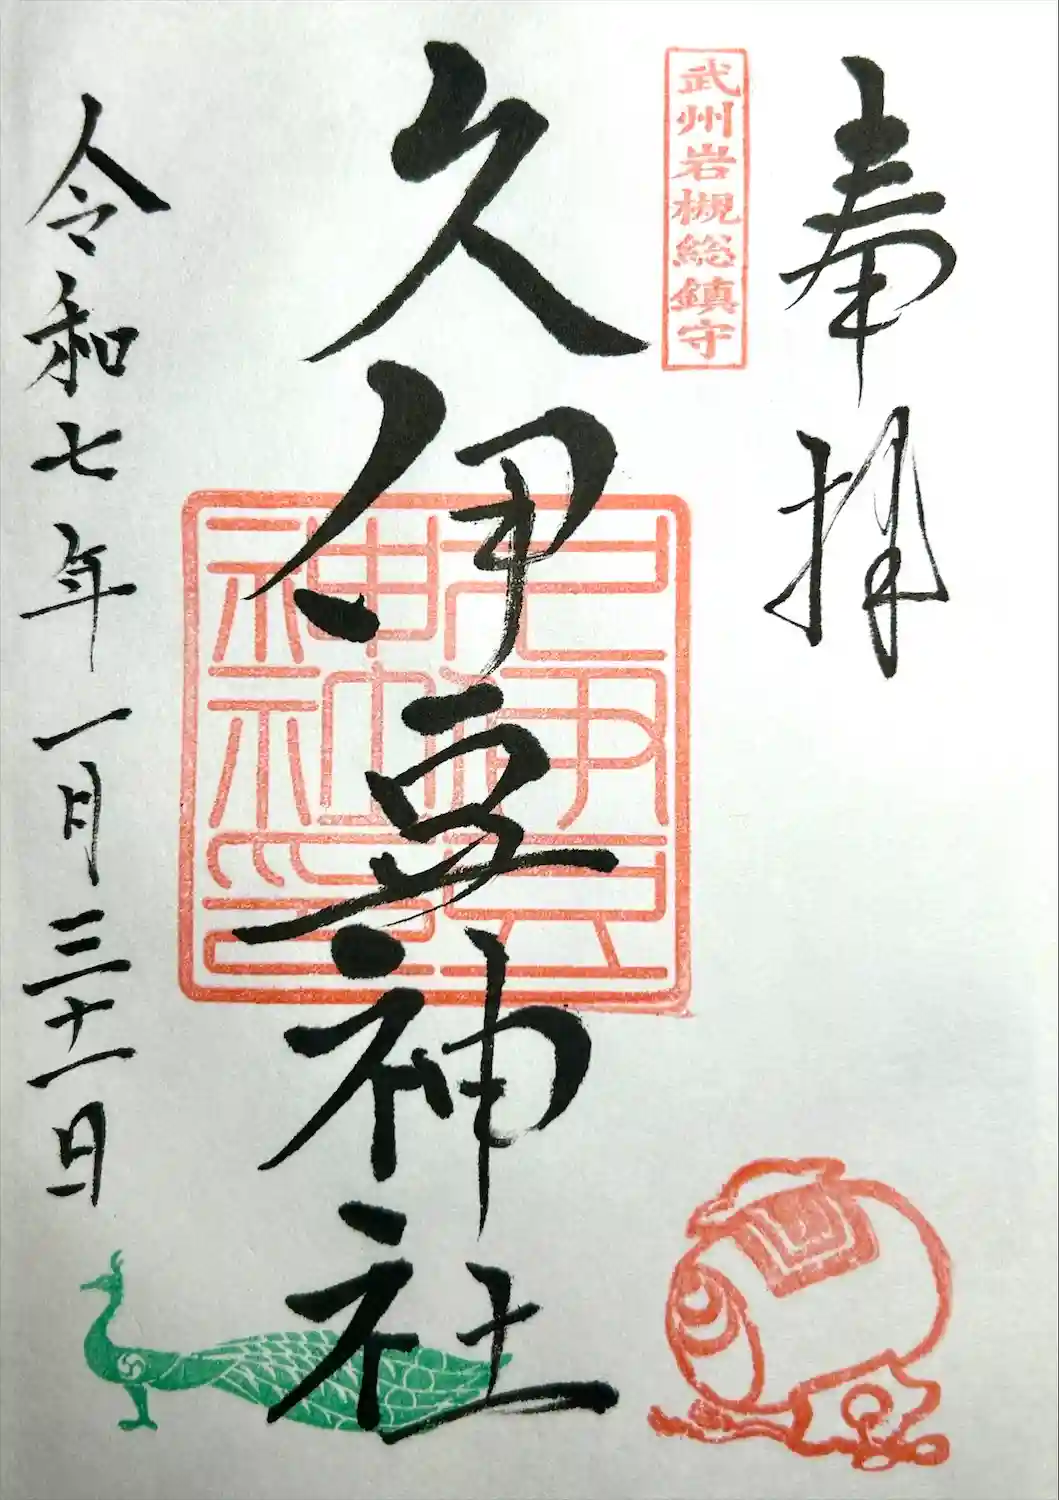 奉拝
武州岩槻総鎮守
久伊豆神社
久伊豆
神社印
令和七年一月三十一日